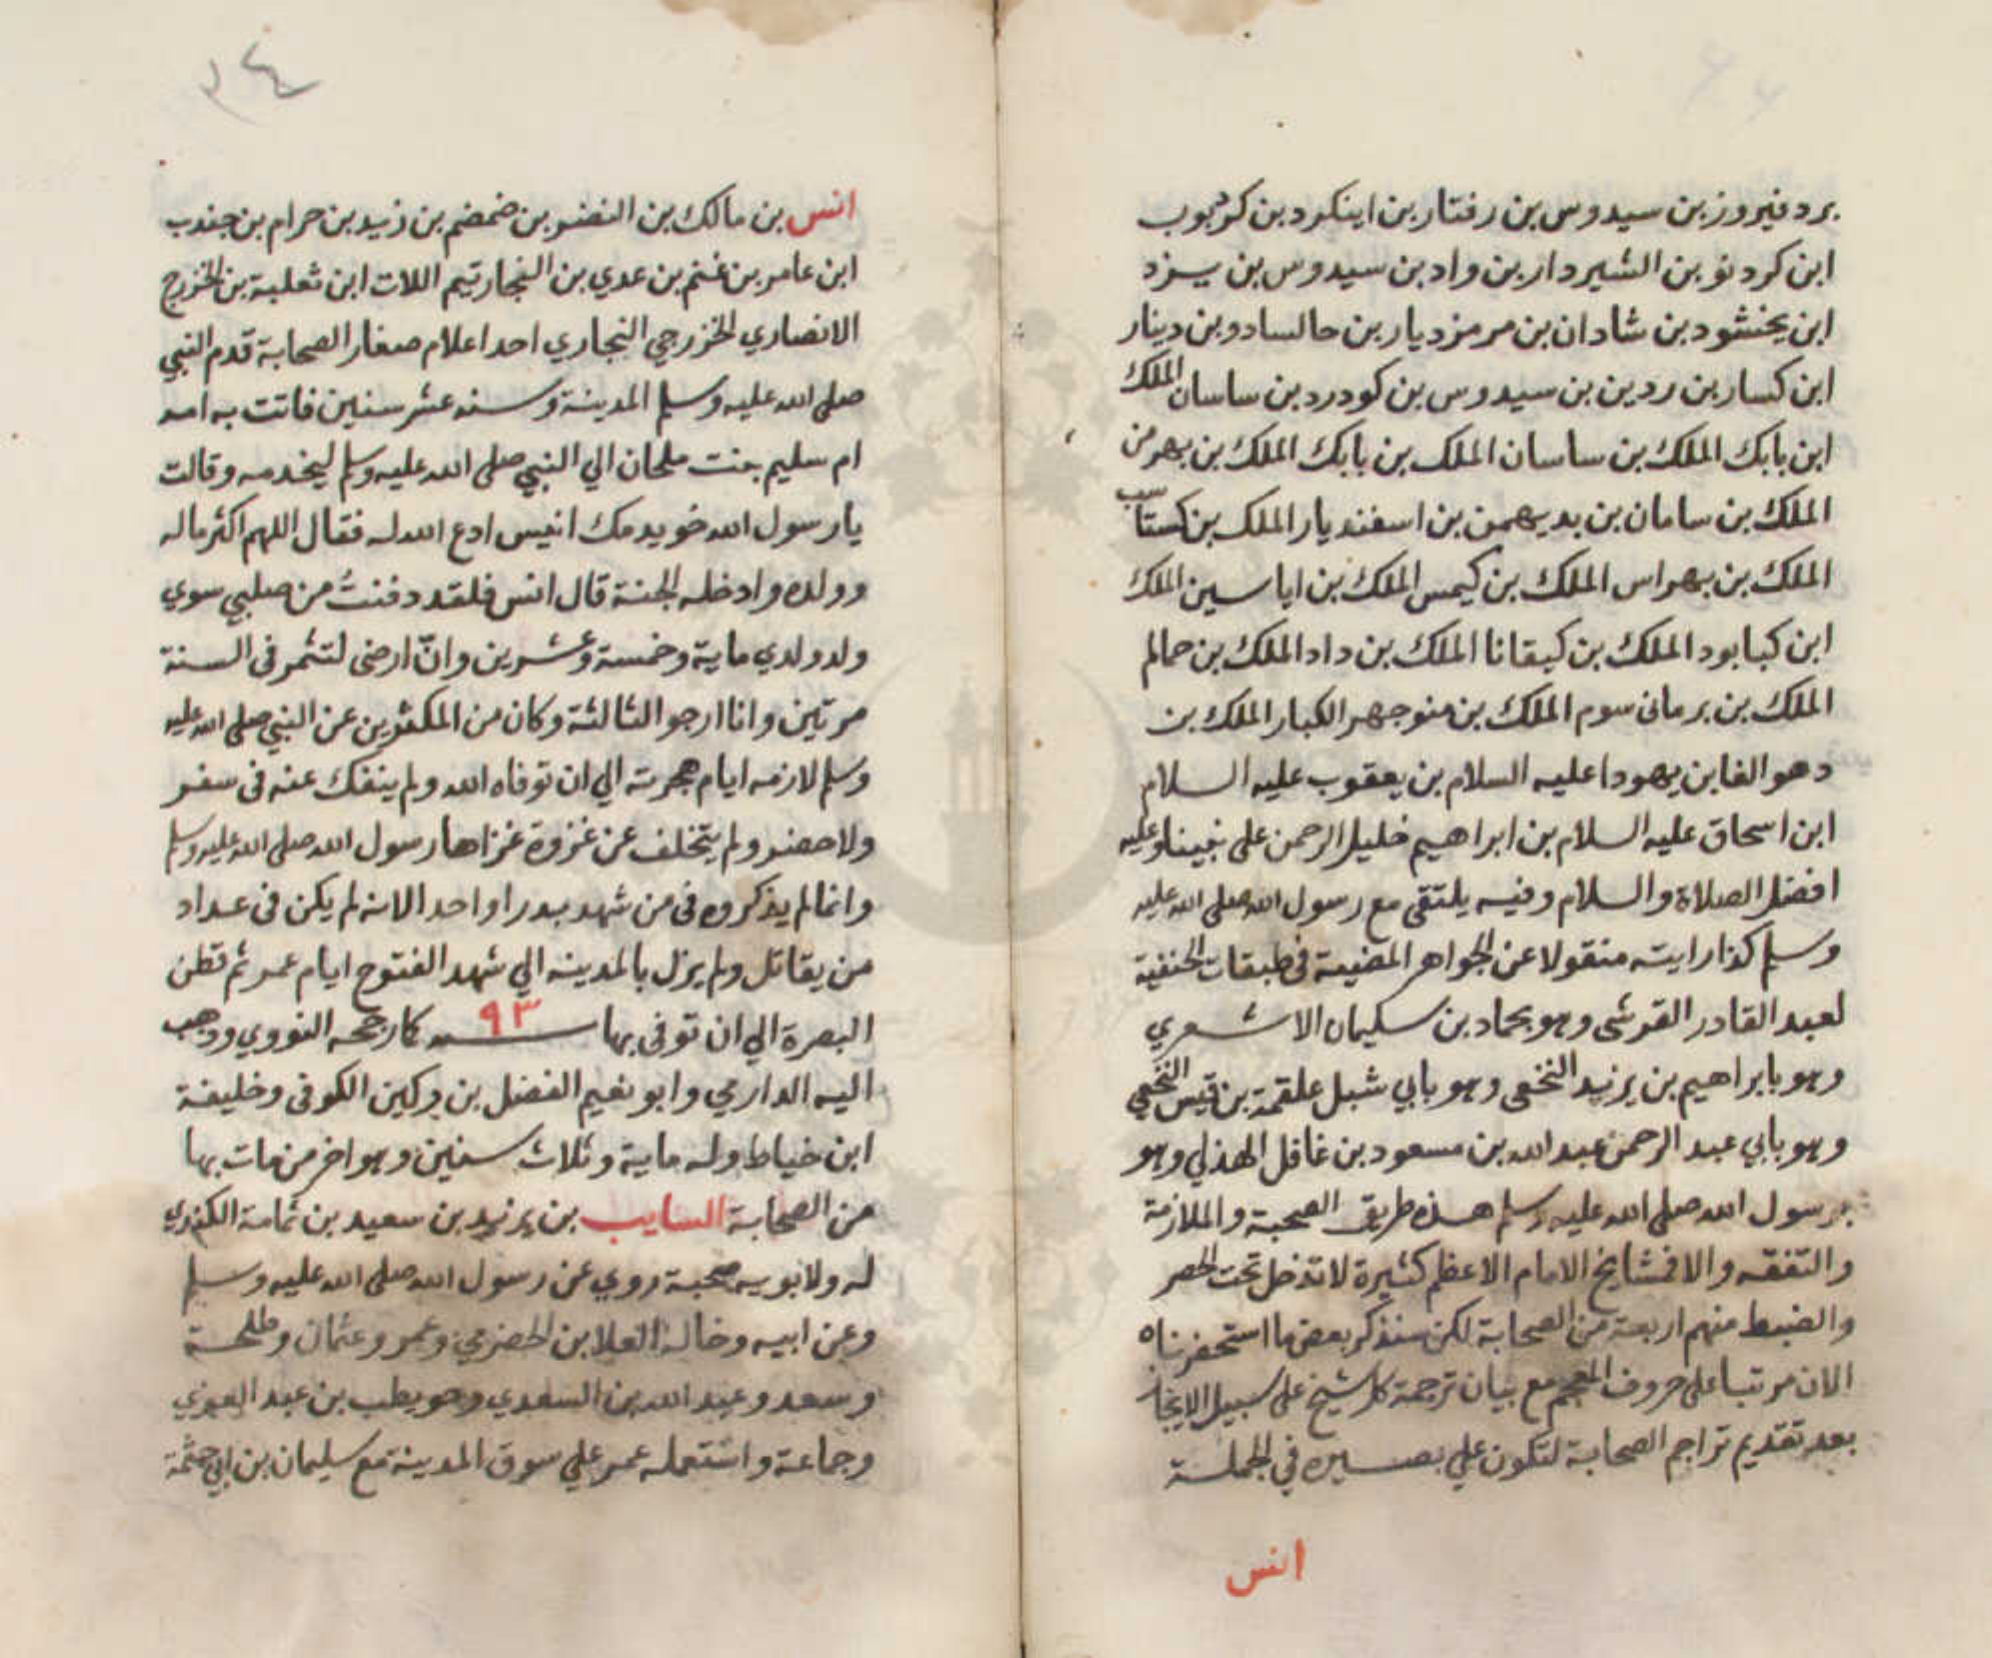 برد فيروز بن سيدوس بن رفتار بن اينكرد بن كرجوب
ابن كردنو بن الشيردار بن واد بن سيدوس بن يزد
ابن يخنشود بن شادان بن مرمزديار بن حالسادو بن دينار
ابن كسار بن ردين بن سيدوس بن كودرد بن ساسان الملك
ابن بابك الملك بن ساسان الملك بن بابك الملك بن بهرمن
الملك بن سامان بن بديهمن بن اسفنديار الملك بن كستاسب
الملك بن بهراس الملك بن كيمس الملك بن اياسين الملك
ابن كيابود الملك بن كيقانا الملك بن داد الملك بن حمالم
الملك بن برمانى سوم الملك بن منوجهر الكبار الملك بن
دهوالفا بن يهودا عليه السلام بن يعقوب عليه السلام
ابن اسحاق عليه السلام بن ابراهيم خليل الرحمن على نبينا وعليه
افضل الصلاة والسلام وفيه يلتقى مع رسول الله صلى الله عليه
وسلم كذا رايته منقولا عن الجواهر المضيية فى طبقات الحنفية
لعبد القادر القرشى وهو بحماد بن سليمان الاشعري
وهو بابراهيم بن يزيد النخعى وهو بابي شبل علقمة بن قيس النخعي
وهو بابي عبد الرحمن عبد الله بن مسعود بن غافل الهذلي وهو
برسول الله صلى الله عليه وسلم هذه طريق الصحبة والملازمة
والتفقه والا فمشايخ الامام الاعظم كثيرة لا تدخل تحت الحصر
والضبط منهم اربعة من الصحابة لكن سنذكر بعض ما استحضرناه
الان مرتبا على حروف المعجم مع بيان ترجمة كل شيخ على سبيل الايجاز
بعد تقديم تراجم الصحابة لتكون علي بصيره في الجملة
انس
١٤
انس بن مالك بن النضر بن ضمضم بن زيد بن حرام بن جندب
ابن عامر بن غنم بن عدي بن النجار تيم اللات ابن ثعلبة بن الخزرج
الانصاري الخزرجي النجاري احد اعلام صغار الصحابة قدم النبي
صلى الله عليه وسلم المدينة وسنه عشر سنين فاتت به امه
ام سليم بنت ملحان الي النبي صلى الله عليه وسلم ليخدمه وقالت
يا رسول الله خويدمك انيس ادع الله له فقال اللهم اكثر ماله
وولده وادخله الجنة قال انس فلقد دفنت من صلبي سوي
ولد ولدي ماية وخمسة وعشرين وانّ ارضى لتثمر فى السنة
مرتين وانا ارجو الثالثة وكان من المكثرين عن النبي صلى الله عليه
وسلم لازمه ايام هجرته الي ان توفاه الله ولم ينفك عنه فى سفر
ولا حضر ولم يتخلف عن غزوة غزاها رسول الله صلى الله عليه وسلم
وانما لم يذكروه فى من شهد بدرا واحد الانه لم يكن فى عداد
من يقاتل ولم يزل بالمدينه الي شهد الفتوح ايام عمر ثم قطن
البصرة الي ان توفى بها سنه ٩٣ كما رجحه النووي وذهب
اليه الدارمي وابو نعيم الفضل بن دكين الكوفى وخليفة
ابن خياط وله ماية وثلاث سنين وهو اخر من مات بها
من الصحابة السايب بن يزيد بن سعيد بن ثمامة الكندي
له ولابويه صحبة روي عن رسول الله صلى الله عليه وسلم
وعن ابيه وخاله العلا بن الحضرمي وعمر وعثمان وطلحة
وسعد وعبد الله بن السعدي وحويطب بن عبد العزي
وجماعة واستعمله عمر علي سوق المدينة مع سليمان بن ابي حثمة